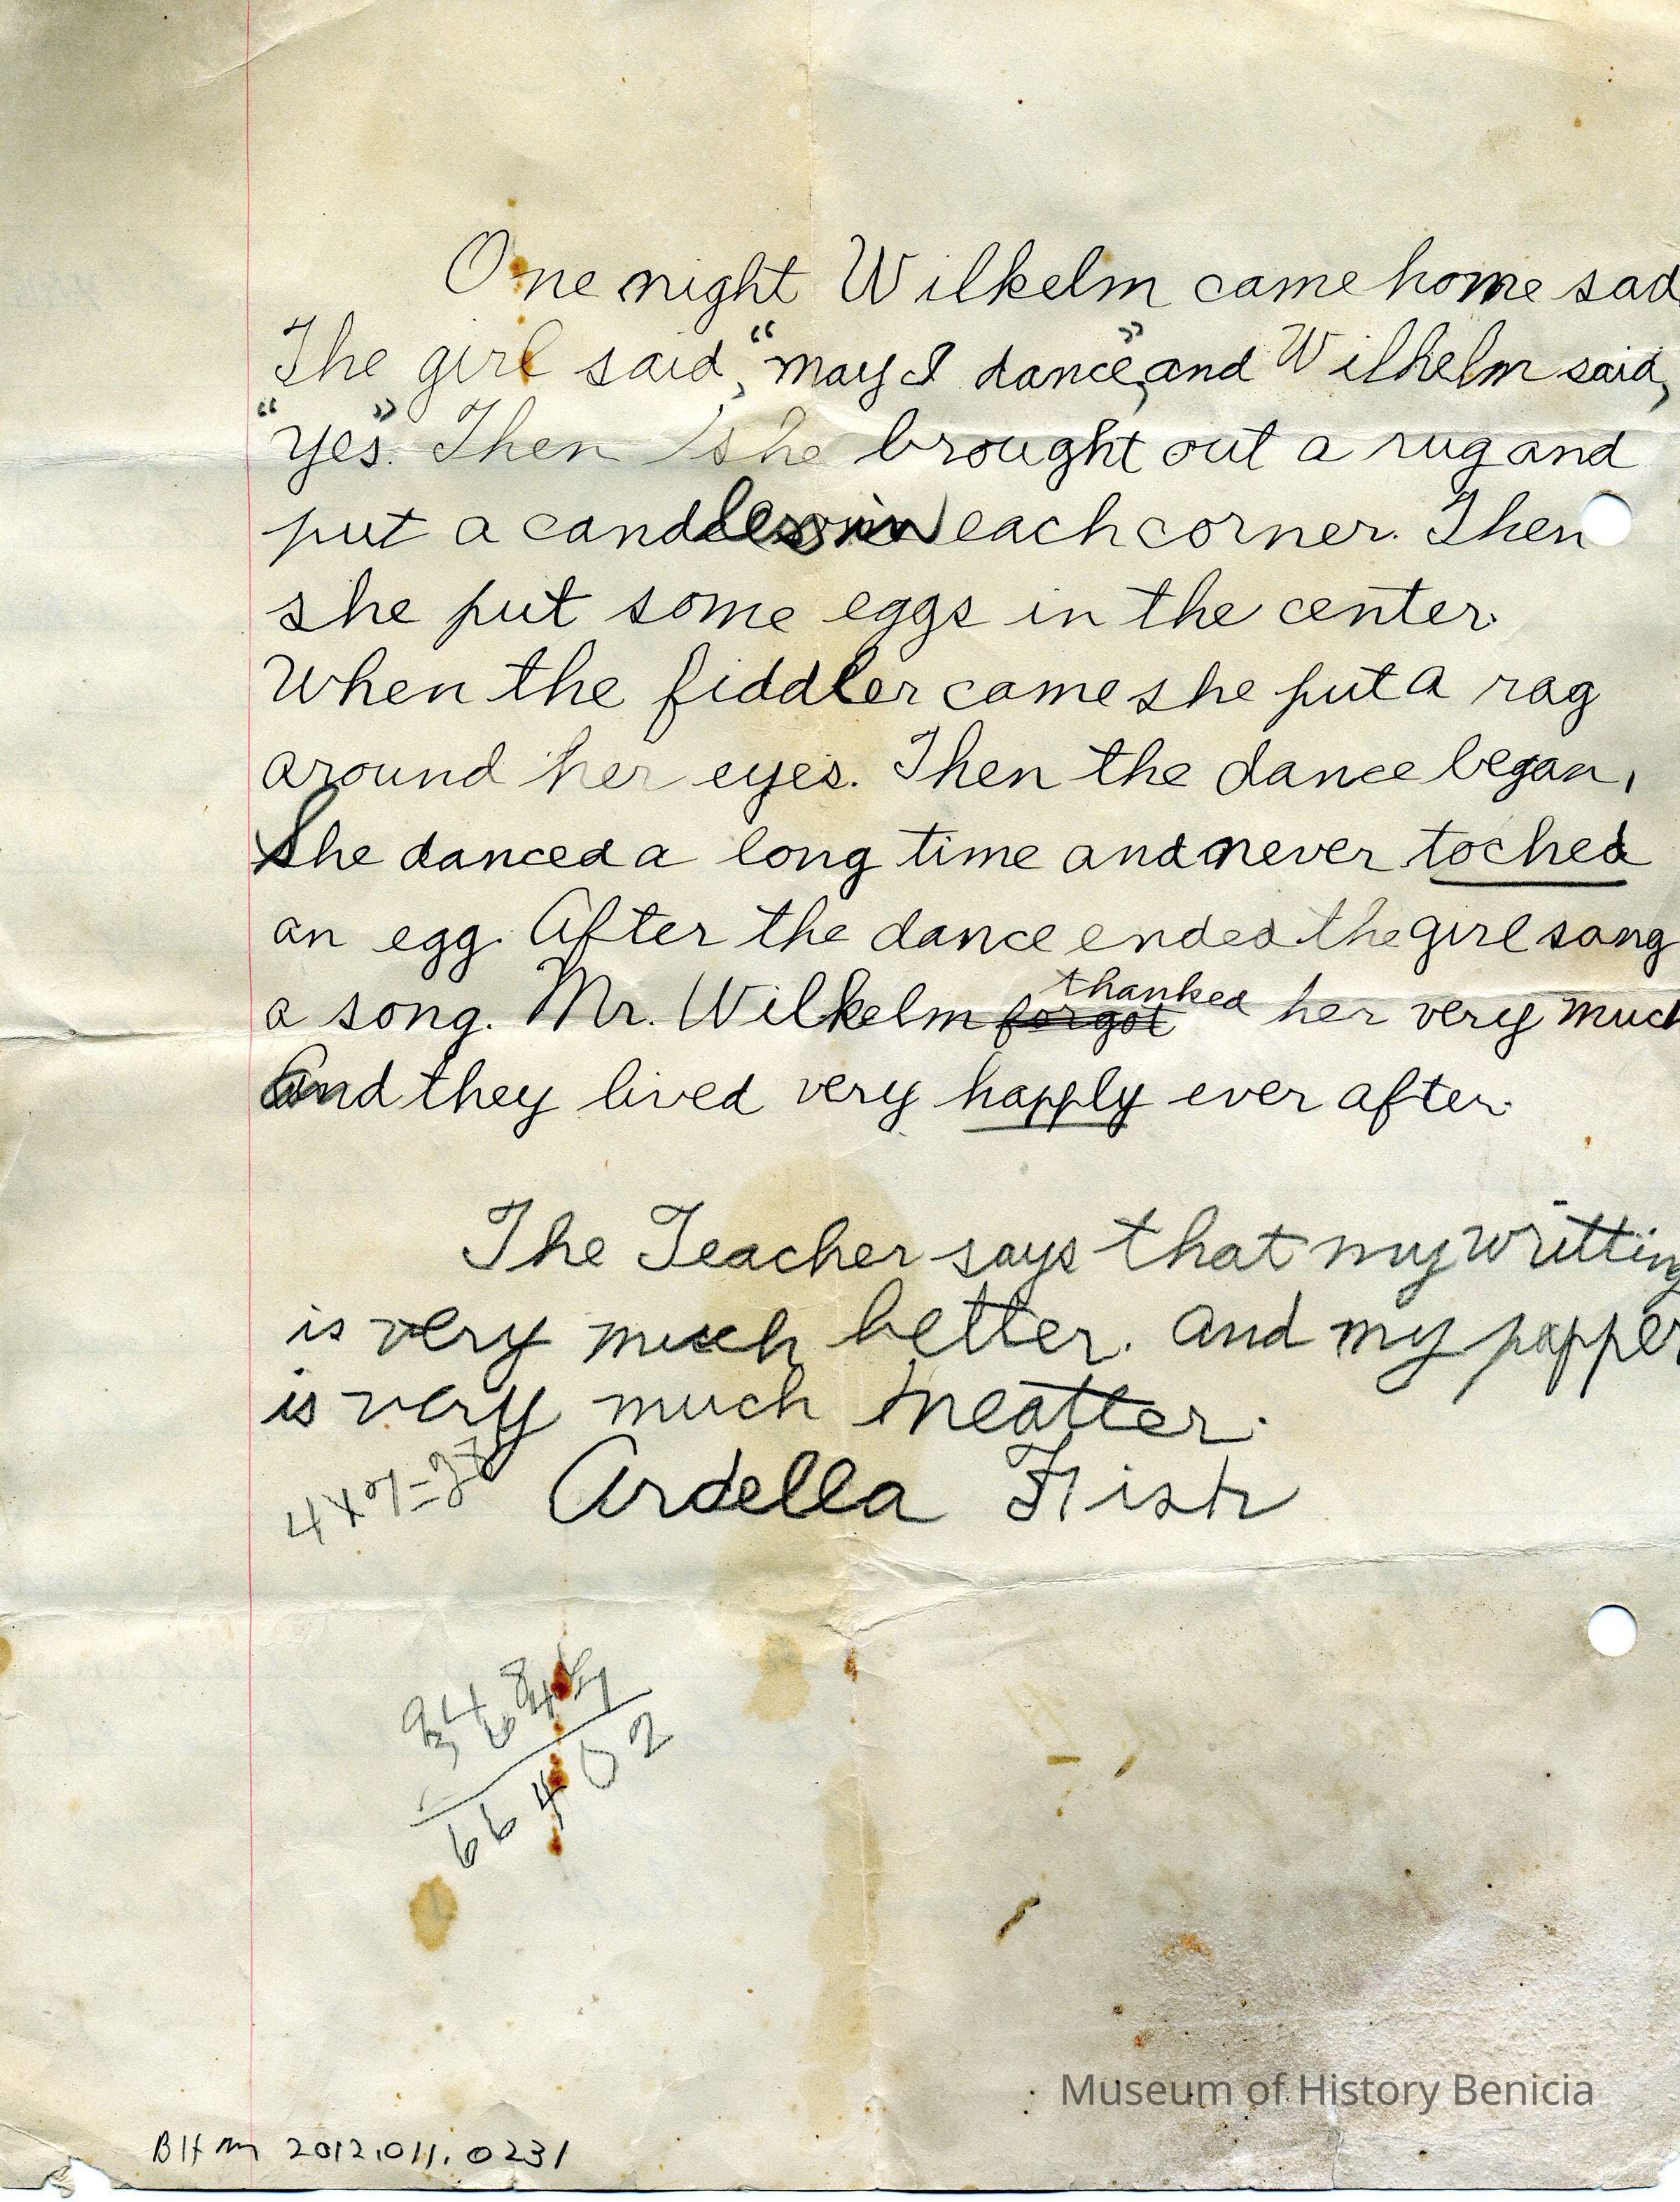 One night Wilkelm came home sad
The girl said, "may I dance", and Wilhelm said,
"yes". Then she brought out a rug and
put a candles in each corner. Then
she put some eggs in the center.
When the fiddler came she put a rag
around her eyes. Then the dance began,
She danced a long time and never toched
an egg. After the dance ended the girl sang
a song. Mr. Wilkelm forgot thanked her very much
And they lived very happly ever after.
The Teacher says that my writting
is very much better. And my papper
is very much neatter.
4x7=28
Ardella Fish
66402
BHM 2012.011.0231
Museum of History Benicia